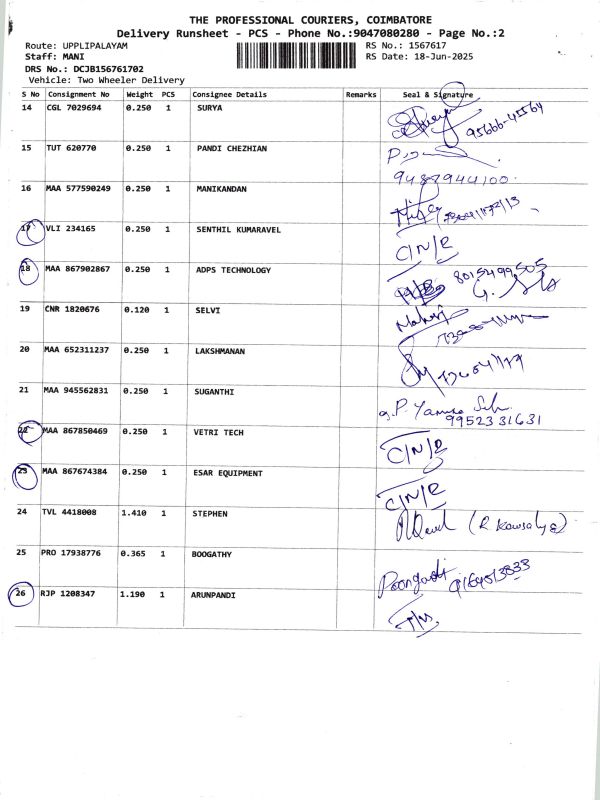 THE PROFESSIONAL COURIERS, COIMBATORE
Delivery Runsheet - PCS - Phone No.:9047080280 - Page No.:2
Route: UPPLIPALAYAM RS No.: 1567617
Staff: MANI RS Date: 18-Jun-2025
DRS No.: DCJB156761702
Vehicle: Two Wheeler Delivery
S No Consignment No Weight PCS Consignee Details Remarks Seal & Signature
14 CGL 7029694 0.250 1 SURYA 95666-45564
15 TUT 620770 0.250 1 PANDI CHEZHIAN
9487944100.
16 MAA 577590249 0.250 1 MANIKANDAN
17 VLI 234165 0.250 1 SENTHIL KUMARAVEL C/N/R
18 MAA 867902867 0.250 1 ADPS TECHNOLOGY 8015499505
19 CNR 1820676 0.120 1 SELVI
20 MAA 652311237 0.250 1 LAKSHMANAN
21 MAA 945562831 0.250 1 SUGANTHI
9952331631
22 MAA 867850469 0.250 1 VETRI TECH C/N/R
23 MAA 867674384 0.250 1 ESAR EQUIPMENT C/N/R
24 TVL 4418008 1.410 1 STEPHEN
25 PRO 17938776 0.365 1 BOOGATHY
26 RJP 1208347 1.190 1 ARUNPANDI